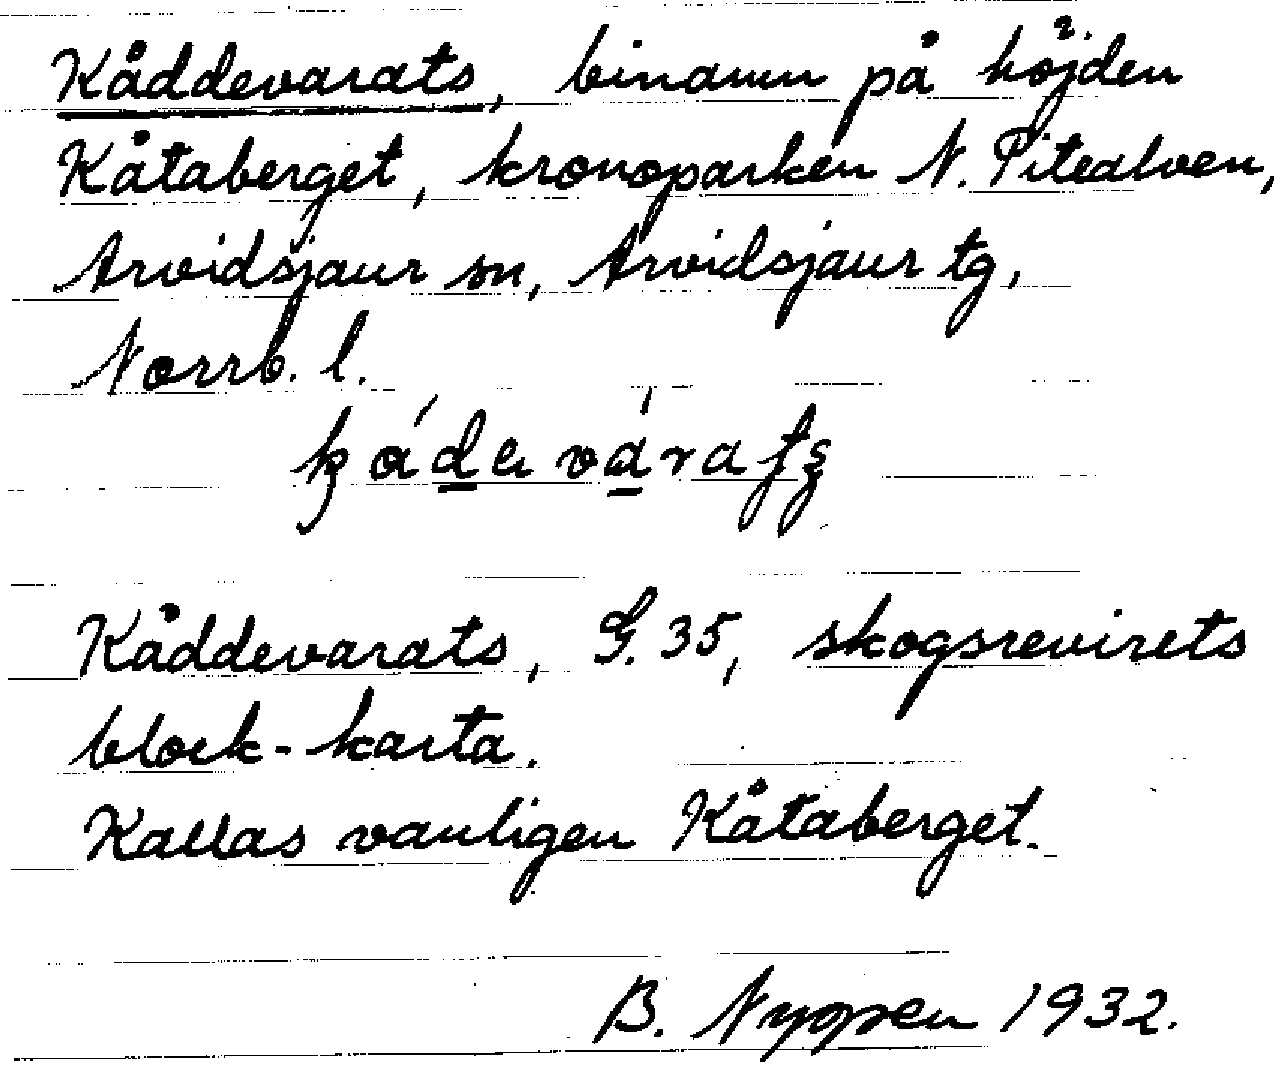 Kåddevarats, binamn på höjden
Kåtaberget, kronoparken N. Pitealven,
Arvidsjaur sn, Arvidsjaur tg,
Norrb. l.
Kåddevarats, G. 35, skogsrevirets
block-karta.
Kallas vanligen Kåtaberget.
B. Nyppen 1932.